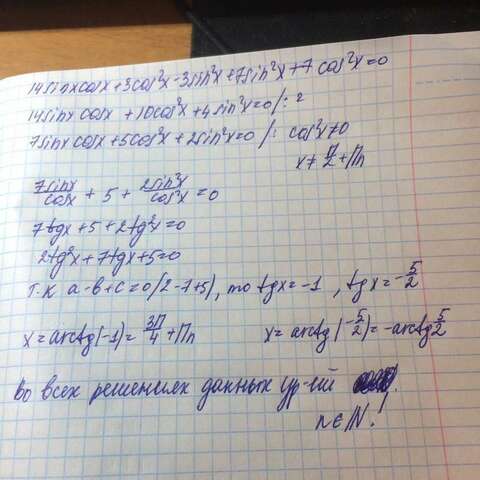 14sinxcosx+3cos²x-3sin²x+7sin²x+7cos²x=0
14sinxcosx+10cos²x+4sin²x=0/:2
7sinxcosx+5cos²x+2sin²x=0/: cos²x≠0
x≠π/2+πn
7sinx/cosx+5+2sin²x/cos²x=0
7tgx+5+2tg²x=0
2tg²x+7tgx+5=0
т.к a-b+c=0(2-7+5), то tgx=-1, tgx=-5/2
x=arctg(-1)=3π/4+πn x=arctg(-5/2)=-arctg5/2
Во всех решениях данных ур-ий
n∈N!